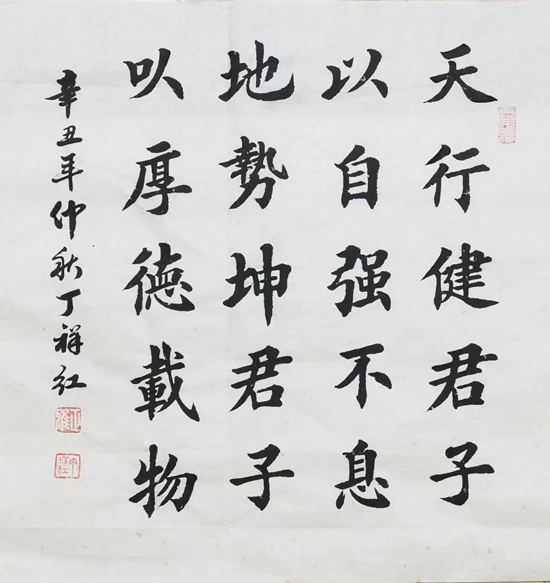 天行健君子
以自强不息
地勢坤君子
以厚德載物
辛丑年仲秋丁祥红